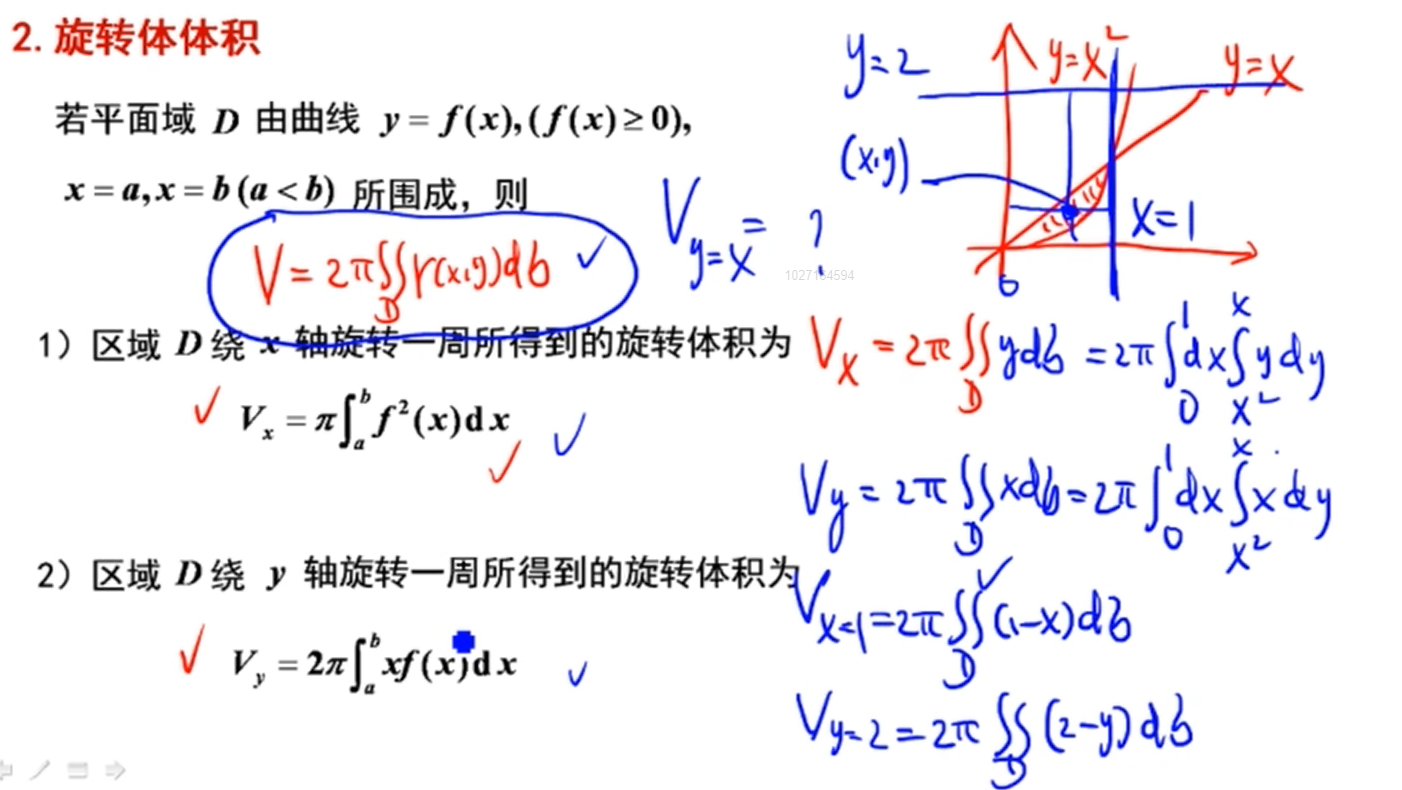 2.旋转体体积
若平面域 D 由曲线 y = f(x),(f(x) ≥ 0),
x = a, x = b (a < b) 所围成，则
V = 2π∬_D r(x,y)dσ ✓
1）区域 D 绕 x 轴旋转一周所得到的旋转体积为
✓ V_x = π∫_a^b f²(x)dx ✓ ✓
2）区域 D 绕 y 轴旋转一周所得到的旋转体积为
✓ V_y = 2π∫_a^b xf(x)dx ✓
V_{y=x} = ?
1027164594
y=2
y=x²
y=x
(x,y)
x=1
0
V_x = 2π∬_D ydσ = 2π∫_0^1 dx∫_{x²}^x ydy
V_y = 2π∬_D xdσ = 2π∫_0^1 dx∫_{x²}^x xdy
V_{x=1} = 2π∬_D (1-x)dσ ✓
V_{y=2} = 2π∬_D (2-y)dσ